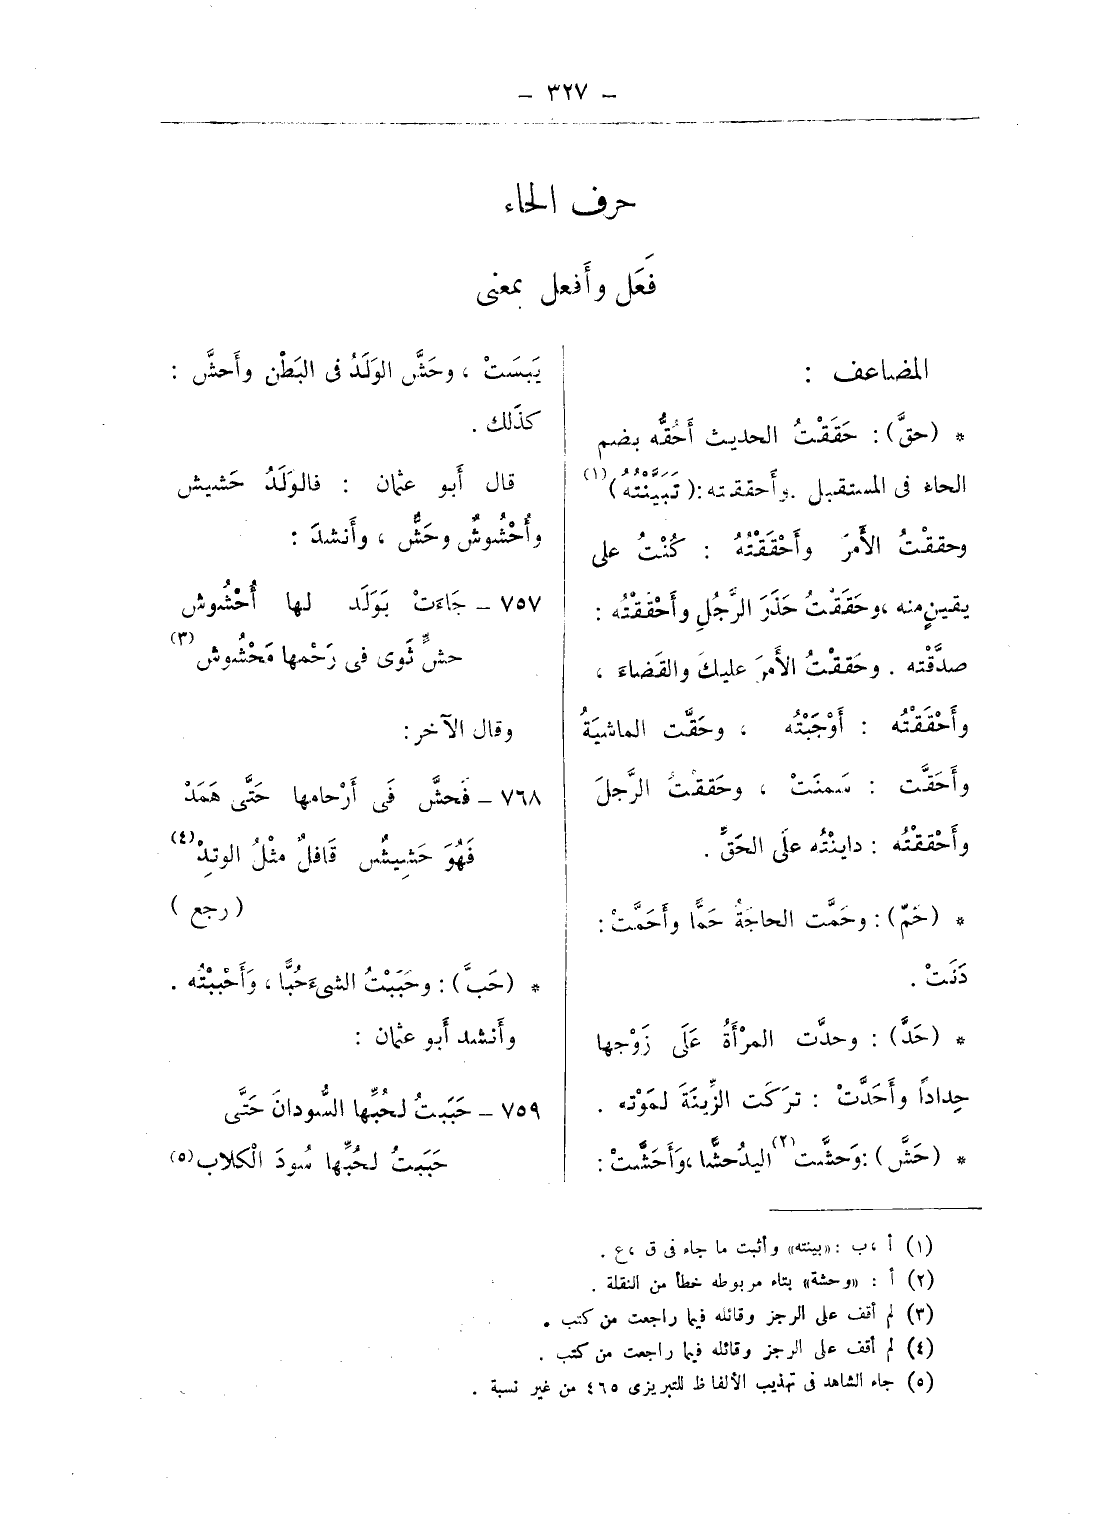 – ٣٢٧ –
حرف الحاء
فَعَل وأَفعل بمعنى
المضاعف :
* (حقَّ): حَقَقْتُ الحديث أَحُقُّه بضم
الحاء فى المستقبل . وأَحققته :( تَبَيَّنْتُهُ )(١)
وحققْتُ الأَمرَ وأَحْقَقْتُهُ : كُنْتُ على
يقينٍ منه ، وحَقَقْتُ حَذَرَ الرَّجُلِ وأَحْقَقْتُه :
صدَّقْته . وحَققْتُ الأَمرَ عليكَ والقَضاءَ ،
وأَحْقَقْتُه : أَوْجَبْتُه ، وحَقَّت الماشيَةُ
وأَحَقَّت : سَمنَتْ ، وحَققْتُ الرَّجلَ
وأَحْققْتُه : داينْتُه علَى الحَقِّ .
* (حَمّ): وحَمَّت الحاجَةُ حَمًّا وأَحَمَّتْ :
دَنَتْ .
* (حَدَّ) : وحدَّت المرْأَةُ عَلَى زَوْجها
حِداداً وأَحَدَّتْ : تركَت الزِّينَةَ لمَوْته .
* (حَشَّ) : وَحشَّت (٢) اليدُ حشًّا ، وَأَحَشَّتْ :
يَبسَتْ ، وحَشَّ الوَلَدُ فى البَطْن وأَحشَّ :
كذَلك .
قال أَبو عثمان : فالوَلَدُ حَشيش
وأُحْشُوشٌ وحَشٌّ ، وأَنشدَ :
٧٥٧ – جَاءَتْ بَوَلَد لها أُحْشُوش
حشٍّ ثَوى فى رَحْمها مَحْشُوش (٣)
وقال الآخر :
٧٦٨ – فَحشَّ فَى أَرْحامها حَتَّى هَمَدْ
فَهُوَ حَشِيشٌ قَافلٌ مثْلُ الوتِدْ (٤)
( رجع )
* (حَبَّ) : وحَبَبْتُ الشىءَ حُبًّا ، وَأَحْببْتُه .
وأَنشد أَبو عثمان :
٧٥٩ – حَبَبتُ لحُبِّها السُّودانَ حَتَّى
حَبَبتُ لحُبِّها سُودَ الْكلاب (٥)
(١) أ ، ب : «بينته» وأثبت ما جاء فى ق ، ع .
(٢) أ : «وحشة» بتاء مربوطه خطأ من النقلة .
(٣) لم أقف على الرجز وقائله فيما راجعت من كتب .
(٤) لم أقف على الرجز وقائله فيما راجعت من كتب .
(٥) جاء الشاهد فى تهذيب الألفاظ للتبريزى ٤٦٥ من غير نسبة .